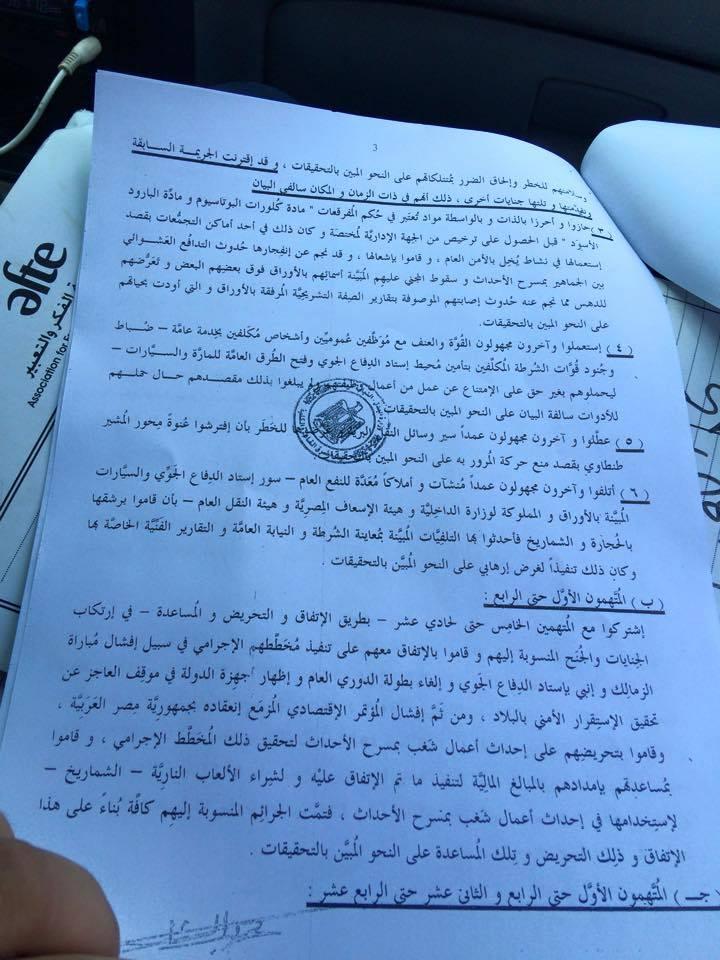 3
وسلامتهم للخطر وإلحاق الضرر بممتلكاتهم على النحو المبين بالتحقيقات ، و قد إقترنت الجريمة السابقة
وتقدمتها و تلتها جنايات أخرى ، ذلك أنهم فى ذات الزمان و المكان سالفي البيان
( ٣ ) حازوا و أحرزوا بالذات و بالواسطة مواد تُعتبر في حُكم المُفرقعات " مادة كلُورات البوتاسيوم و مادَّة البارود
الأسوَد " قبل الحصول على ترخيص من الجهة الإداريَّة المُختصَة و كان ذلك في أحد أماكن التجمُّعات بقصد
إستعمالها في نشاط يُخِل بالأمن العام ، و قاموا بإشعالها ، و قد نجم عن إنفجارها حُدوث التدافُع العَشوائي
بين الجماهير بمسرح الأحداث و سقوط المجني عليهم المُبيَّنة أسمائِهم بالأوراق فوق بعضهم البعض و تَعرُّضهم
للدهس مما نجم عنه حُدوث إصابتهم الموصوفة بتقارير الصِفة التشريحيَّة المُرفقة بالأوراق و التي أودت بحياتهم
على النحو المبين بالتحقيقات.
( ٤ ) إستعملوا وآخرون مجهولون القُوَّة والعنف مع مُوَظَّفين عُموميِّين وأشخاص مُكَلفين بخِدمة عامَّة – ضُباط
وجُنود قُوَّات الشرطة المكلَّفين بتأمين مُحيط إستاد الدِفاع الجوي وفتح الطُرق العامَّة للمارَّة والسيَّارات –
ليحملوهم بغير حق على الإمتناع عن عمل من أعمال ولم يبلغوا بذلك مقصدهم حال حملهم
للأدوات سالفة البيان على النحو المبين بالتحقيقات
( ٥ ) عطَّلوا و آخرون مجهولون عمداً سير وسائل النقل البر للخَطَر بأن إفترشوا عُنوةً مِحور المُشير
طنطاوي بقصد منع حركة المُرور به على النحو المبين بالتحقيقات
( ٦ ) أتلفوا وآخرون مجهولون عمداً مُنشآت و أملاكاً مُعَدَّة للنفع العام – سور إستاد الدِفاع الجَوي والسيَّارات
المُبيَّنة بالأوراق و المملوكة لوزارة الداخليَّة و هيئة الإسعاف المِصريَّة و هيئة النقل العام – بأن قاموا برشقها
بالحُجارة و الشماريخ فأحدثوا بها التلفيَّات المُبيَّنة بمُعاينة الشُرطة و النيابة العامَّة و التقارير الفَنِّيَّة الخاصَّة بها
وكان ذلك تنفيذاً لغرض إرهابي على النحو المبيَّن بالتحقيقات .
( ب ) المُتَهمون الأوَّل حتى الرابع :
إشتركوا مع المُتهمين الخامِس حتى لحادي عشر – بطريق الإتفاق و التحريض و المساعدة – في إرتكاب
الجنايات والجُنَح المنسوبة إليهم و قاموا بالإتفاق معهم على تنفيذ مُخطَّطهم الإجرامي في سبيل إفشال مُباراة
الزمالك و إنبي بإستاد الدِفاع الجَوي و إلغاء بطولة الدوري العام و إظهار أجهزة الدولة في موقِف العاجز عن
تحقيق الإستِقرار الأمني بالبلاد ، ومن ثَمَّ إفشال المُؤتمر الإقتصادي المُزمَع إنعقاده بجمهوريَّة مِصر العَرَبيَّة ،
وقاموا بتحريضِهم على إحداث أعمال شَغب بمسرح الأحداث لتحقيق ذلك المُخطَّط الإجرامي ، و قاموا
بمُساعدتِهم بإمدادهم بالمبالغ المالِيَّة لتنفيذ ما تم الإتفاق عليْه و لشِراء الألعاب الناريَّة – الشماريخ –
لإستِخدامها في إحداث أعمال شَغب بمَسرح الأحداث ، فتمَّت الجرائِم المنسوبة إليهِم كافَّة بُناءً على هذا
الإتفاق و ذلِك التحريض و تِلك المُساعدة على النحو المُبيَّن بالتحقيقات .
( جـ ) المُتَّهمون الأوَّل حتى الرابع و الثانى عشر حتى الرابع عشر :
afte
الفكر والتعبير
Association for